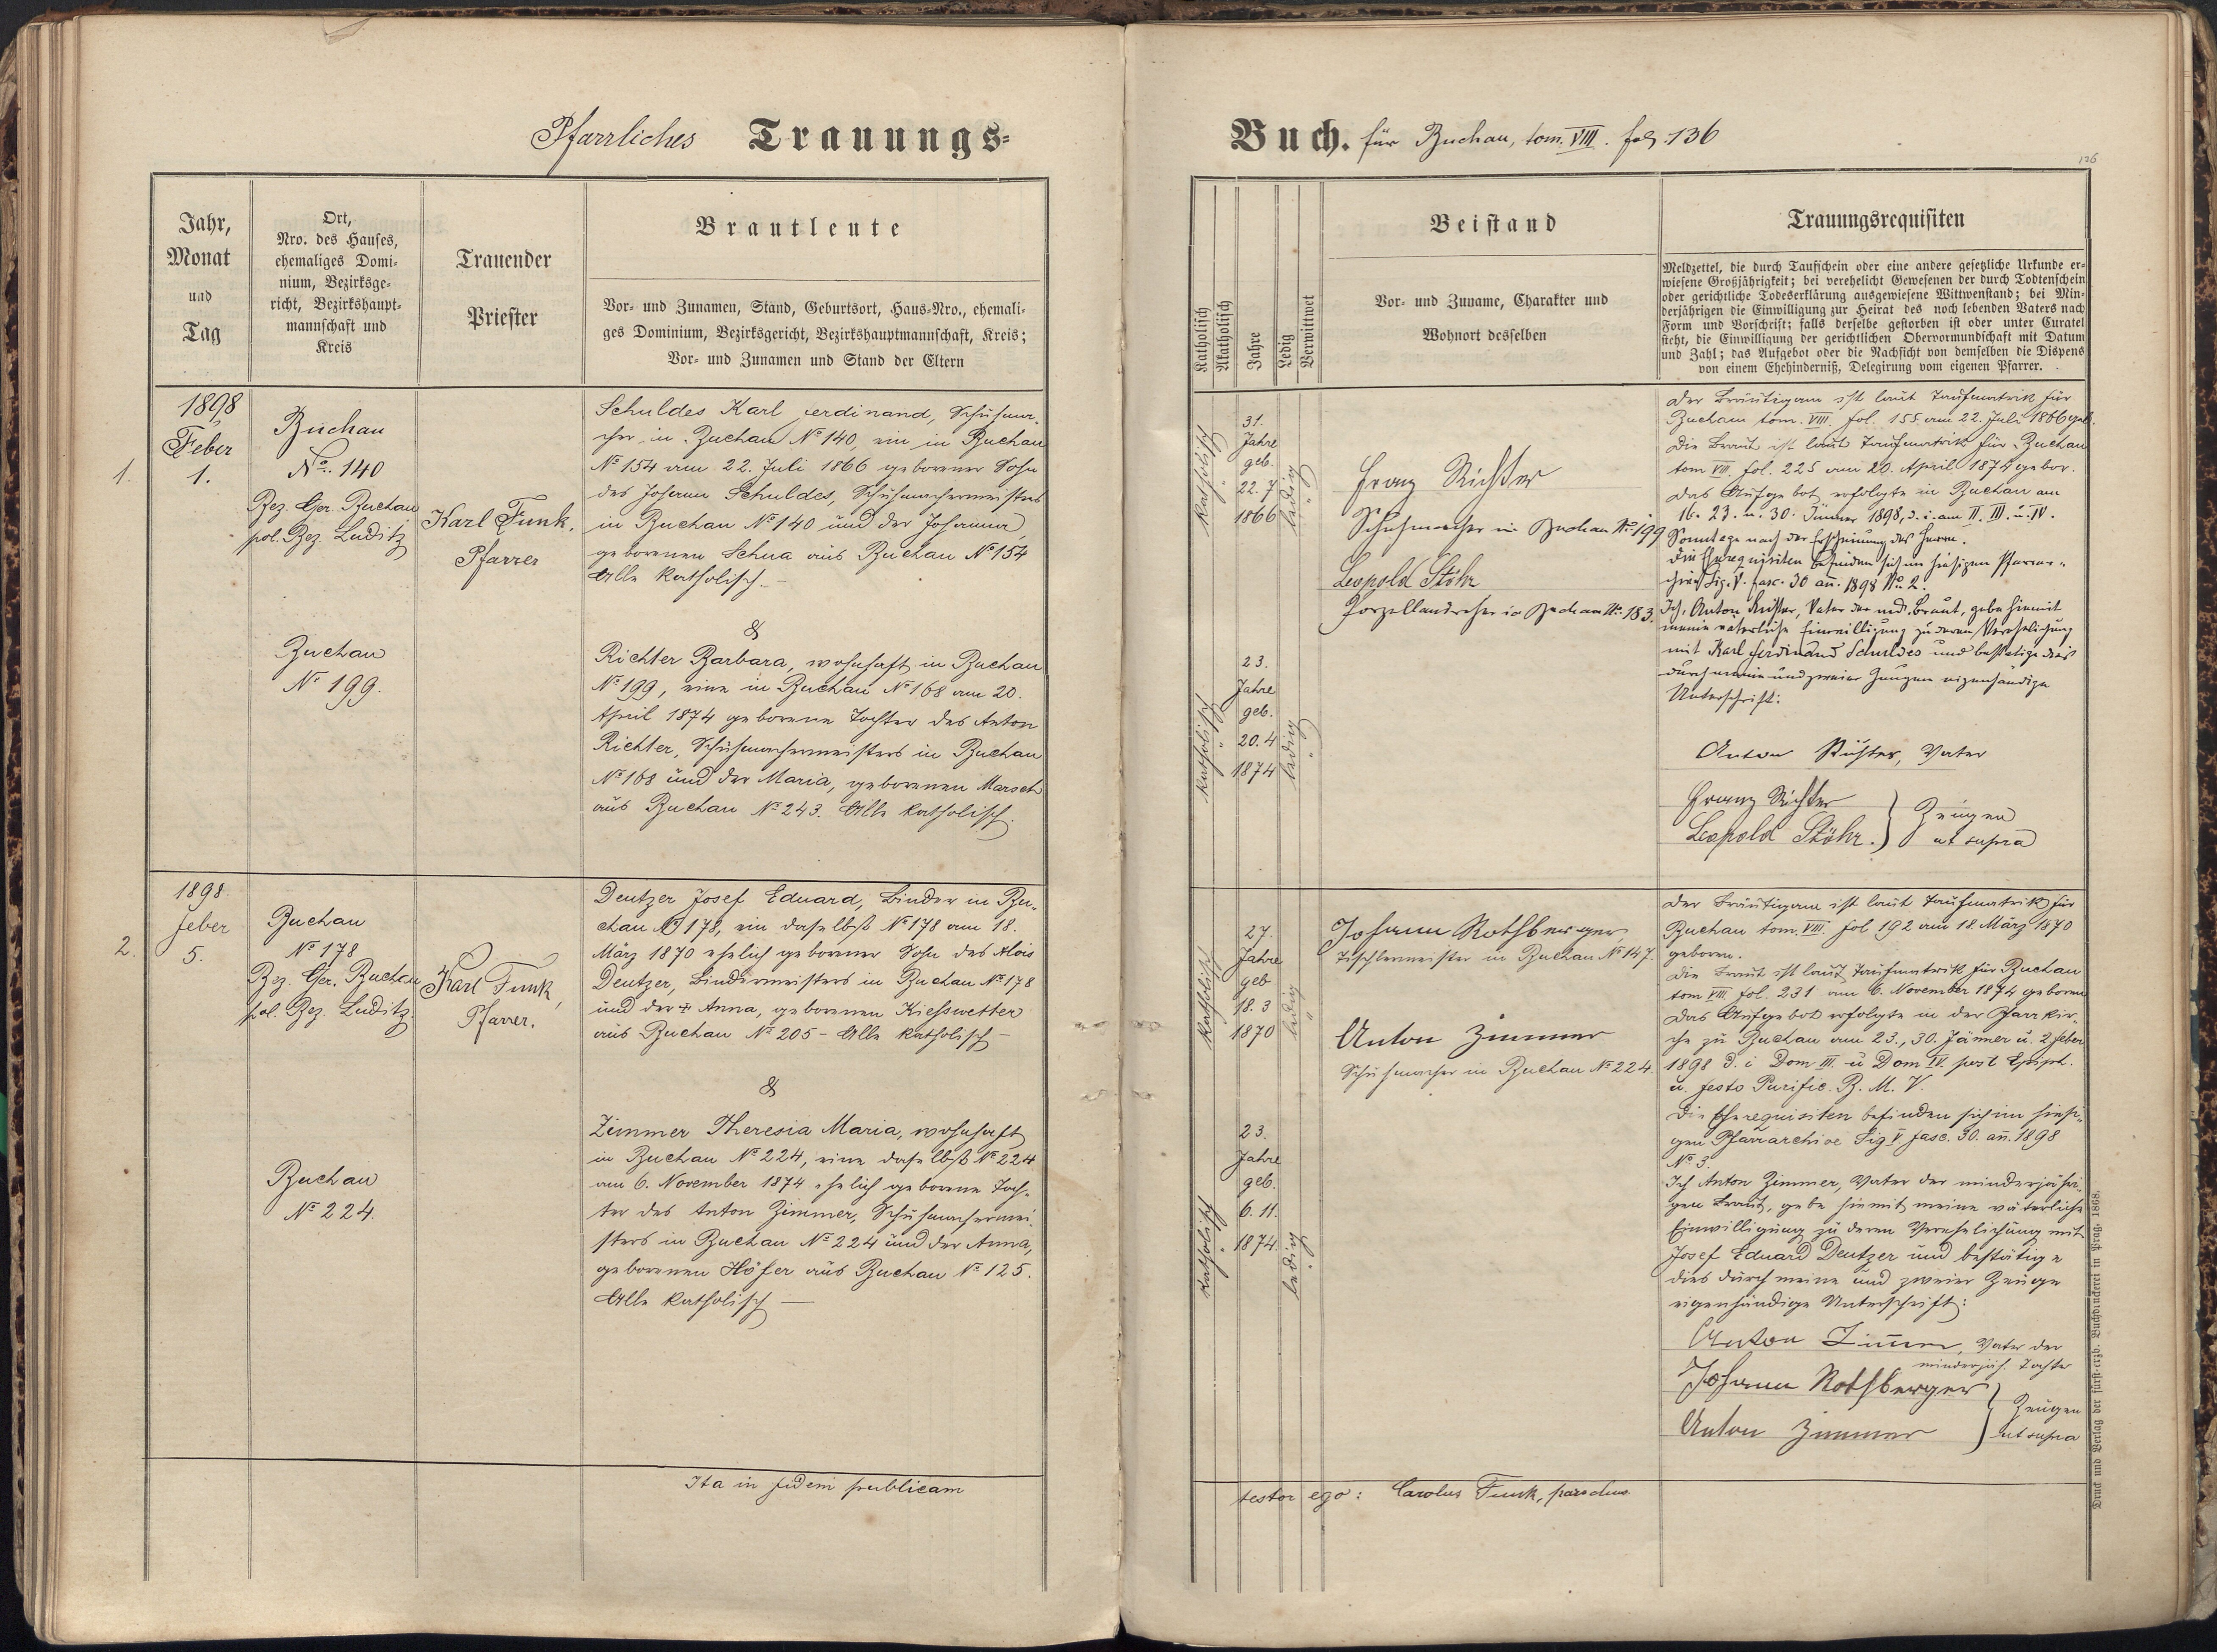 Pfarrliches Trauungs-
Jahr,
Monat
und
Tag
Ort,
Nro. des Hauses,
ehemaliges Domi-
nium, Bezirksge-
richt, Bezirkshaupt-
mannschaft und
Kreis
Trauender
Priester
Brautleute
Vor- und Zunamen, Stand, Geburtsort, Haus-Nro., ehemali-
ges Dominium, Bezirksgericht, Bezirkshauptmannschaft, Kreis;
Vor- und Zunamen und Stand der Eltern
1.
1898
Feber
1.
Buchau
No. 140
Bez. Ger. Buchau
pol. Bez. Luditz
Buchau
No 199.
Karl Funk,
Pfarrer
Schuldes Karl Ferdinand, Schuhma-
cher in Buchau No 140, ein in Buchau
No 154 am 22. Juli 1866 geborener Sohn
des Johann Schuldes, Schuhmachermeisters
in Buchau No 140 und der Johanna,
geborenen Schua aus Buchau No 154
Alle katholisch. —
&
Richter Barbara, wohnhaft in Buchau
No 199, eine in Buchau No 168 am 20.
April 1874 geborene Tochter des Anton
Richter, Schuhmachermeisters in Buchau
No 168 und der Maria, geborenen Marsch
aus Buchau No 243. Alle katholisch.
2.
1898.
Feber
5.
Buchau
No 178
Bez. Ger. Buchau
pol. Bez. Luditz.
Buchau
No 224.
Karl Funk,
Pfarrer.
Deutzer Josef Eduard, Binder in Bu-
chau No 178, ein daselbst No 178 am 18.
März 1870 ehelich geborener Sohn des Alois
Deutzer, Bindermeisters in Buchau No 178
und der + Anna, geborenen Kiesswetter
aus Buchau No 205 - Alle katholisch —
&
Zimmer Theresia Maria, wohnhaft
in Buchau No 224, eine daselbst No 224
am 6. November 1874 ehelich geborene Toch-
ter des Anton Zimmer, Schuhmachermei-
sters in Buchau No 224 und der Anna,
geborenen Höfer aus Buchau No 125.
Alle katholisch —
Ita in fidem publicam
Buch. für Buchau, tom. VIII. fol. 136
136
Katholisch
Akatholisch
Jahre
Ledig
Verwittwet
Beistand
Vor- und Zuname, Charakter und
Wohnort desselben
Trauungsrequisiten
Meldzettel, die durch Taufschein oder eine andere gesetzliche Urkunde er-
wiesene Großjährigkeit; bei verehelicht Gewesenen der durch Todtenschein
oder gerichtliche Todeserklärung ausgewiesene Wittwenstand; bei Min-
derjährigen die Einwilligung zur Heirat des noch lebenden Vaters nach
Form und Vorschrift; falls derselbe gestorben ist oder unter Curatel
steht, die Einwilligung der gerichtlichen Obervormundschaft mit Datum
und Zahl; das Aufgebot oder die Nachsicht von demselben die Dispens
von einem Ehehinderniß, Delegirung vom eigenen Pfarrer.
katholisch
31.
Jahre
geb.
22. 7
1866
ledig
katholisch
23.
Jahre
geb.
20. 4
1874
ledig
Franz Richter
Schuhmacher in Buchau No 199
Leopold Stöhr
Porzellandreher in Buchau No. 183.
Der Bräutigam ist laut Taufmatrik für
Buchau tom. VIII. fol. 155 am 22. Juli 1866 geb.
Die Braut ist laut Taufmatrik für Buchau
tom VIII. fol. 225 am 20. April 1874 gebor.
Das Aufgebot erfolgte in Buchau am
16. 23. u. 30. Jänner 1898, d. i. am II. III. u. IV.
Sonntage nach der Erscheinung des Herrn.
Die Eherequisiten befinden sich im hiesigen Pfarrar-
chive Sig. V. fasc. 30 an. 1898 No. 2.
Ich, Anton Richter, Vater der mdj. Braut, gebe hiemit
meine väterliche Einwilligung zu deren Verehelichung
mit Karl Ferdinand Schuldes und bestätige dies
durch meine und zweier Zeugen eigenhändige
Unterschrift:
Anton Richter, Vater
Franz Richter
Leopold Stöhr.
Zeugen
ut supra
katholisch
27.
Jahre
geb
18. 3
1870
ledig
katholisch
23.
Jahre
geb.
6. 11.
1874
ledig
Johann Rothberger
Tischlermeister in Buchau No 147.
Anton Zimmer
Schuhmacher in Buchau No 224.
Der Bräutigam ist laut Taufmatrik für
Buchau tom. VIII. fol 192 am 18. März 1870
geboren.
Die Braut ist laut Taufmatrik für Buchau
tom VIII. fol. 231 am 6. November 1874 geboren
Das Aufgebot erfolgte in der Pfarrkir-
che zu Buchau am 23., 30. Jänner u. 2 Feber
1898 d. i Dom III. u Dom IV. post Epiph.
u. festo Purific. B. M. V.
Die Eherequisiten befinden sich im hiesi-
gen Pfarrarchive Sig V fasc. 30. an. 1898
No 3.
Ich Anton Zimmer, Vater der minderjähri-
gen Braut, gebe hiemit meine väterliche
Einwilligung zu deren Verehelichung mit
Josef Eduard Deutzer und bestätige
dies durch meine und zweier Zeugen
eigenhändige Unterschrift:
Anton Zimmer, Vater der
minderjäh. Tochter
Johann Rothberger
Anton Zimmer
Zeugen
ut supra
testor ego: Carolus Funk, parochus
Druck und Verlag der fürst-erzb. Buchdruckerei in Prag. 1868.